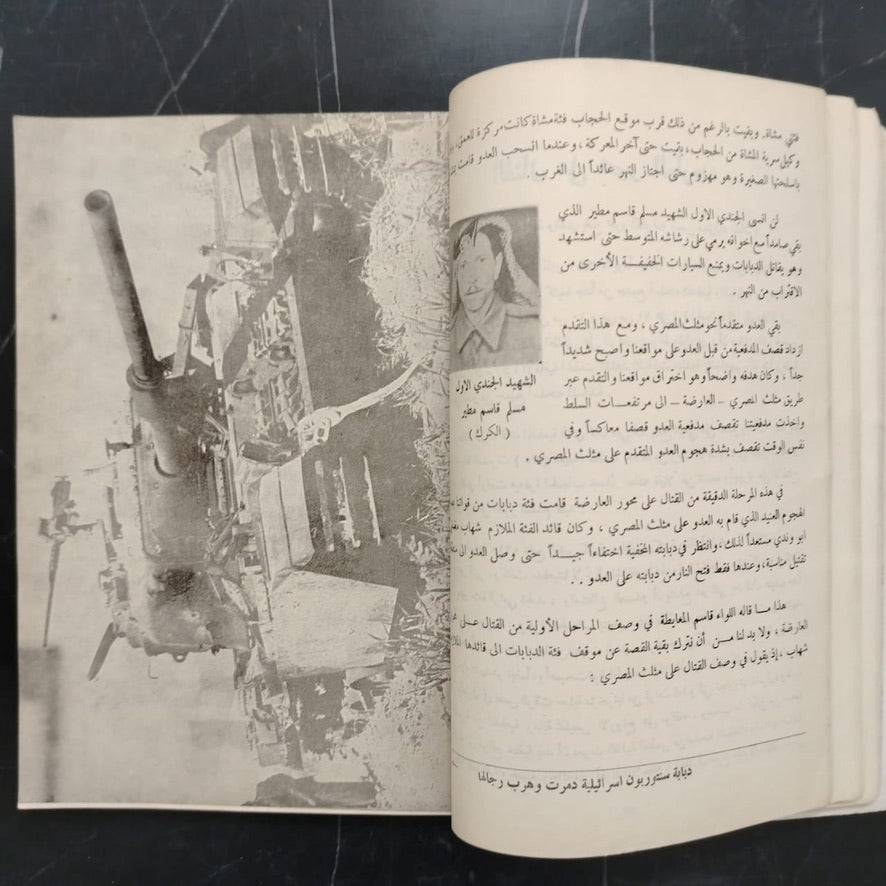 فئتي مشاة. وبقيت بالرغم من ذلك قرب موقع الحجاب فئة مشاة كانت مركزة للعمق،
وكيل سرية المشاة من الحجاب، بقيت حتى آخر المعركة، وعندما انسحب العدو قامت
باسلحتها الصغيرة وهو مهزوم حتى اجتاز النهر عائداً الى الغرب .
لن انسى الجندي الاول الشهيد مسلم قاسم مطير الذي
بقي صامداً مع اخوانه يرمي على رشاشه المتوسط حتى استشهد
وهو يقاتل الدبابات ويمنع السيارات الخفيفة الأخرى من
الاقتراب من النهر .
بقي العدو متقدماً نحو مثلث المصري ، ومع هذا التقدم
ازداد قصف المدفعية من قبل العدو على مواقعنا واصبح شديداً
جداً ، وكان هدفه واضحاً وهو اختراق مواقعنا والتقدم عبر
طريق مثلث المصري – العارضة – الى مرتفعات السلط
واخذت مدفعيتنا تقصف مدفعية العدو قصفا معاكساً وفي
نفس الوقت تقصف بشدة هجوم العدو المتقدم على مثلث المصري .
الشهيد الجندي الاول
مسلم قاسم مطير
( الكرك )
في هذه المرحلة الدقيقة من القتال على محور العارضة قامت فئة دبابات من قواتنا
الهجوم العنيد الذي قام به العدو على مثلث المصري ، وكان قائد الفئة الملازم شهاب
ابو وندي مستعداً لذلك، وانتظر في دبابته المخفية اختفاءاً جيداً حتى وصل العدو الى
تقتيل مناسبة، وعندها فقط فتح النار من دبابته على العدو . .
هذا ما قاله اللواء قاسم المعايطة في وصف المراحل الأولية من القتال على
العارضة ، ولا بد لنا من أن نترك بقية القصة عن موقف فئة الدبابات الى قائدها
شهاب ، إذ يقول في وصف القتال على مثلث المصري :
دبابة سنتوريون اسرائيلية دمرت وهرب رجالها